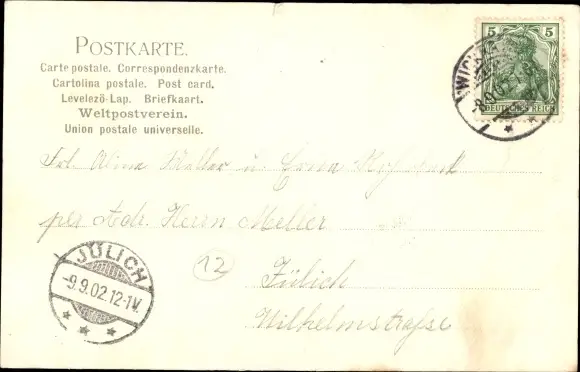 POSTKARTE.
Carte postale. Correspondenzkarte.
Cartolina postale. Post card.
Levelező-Lap. Briefkaart.
Weltpostverein.
Union postale universelle.
5 5
DEUTSCHES REICH
Frl. Alina Meller u. Erna
per Adr. Herrn Meller
12
Jülich
Wilhelmstraße
JÜLICH
-9.9.02.12-1V.